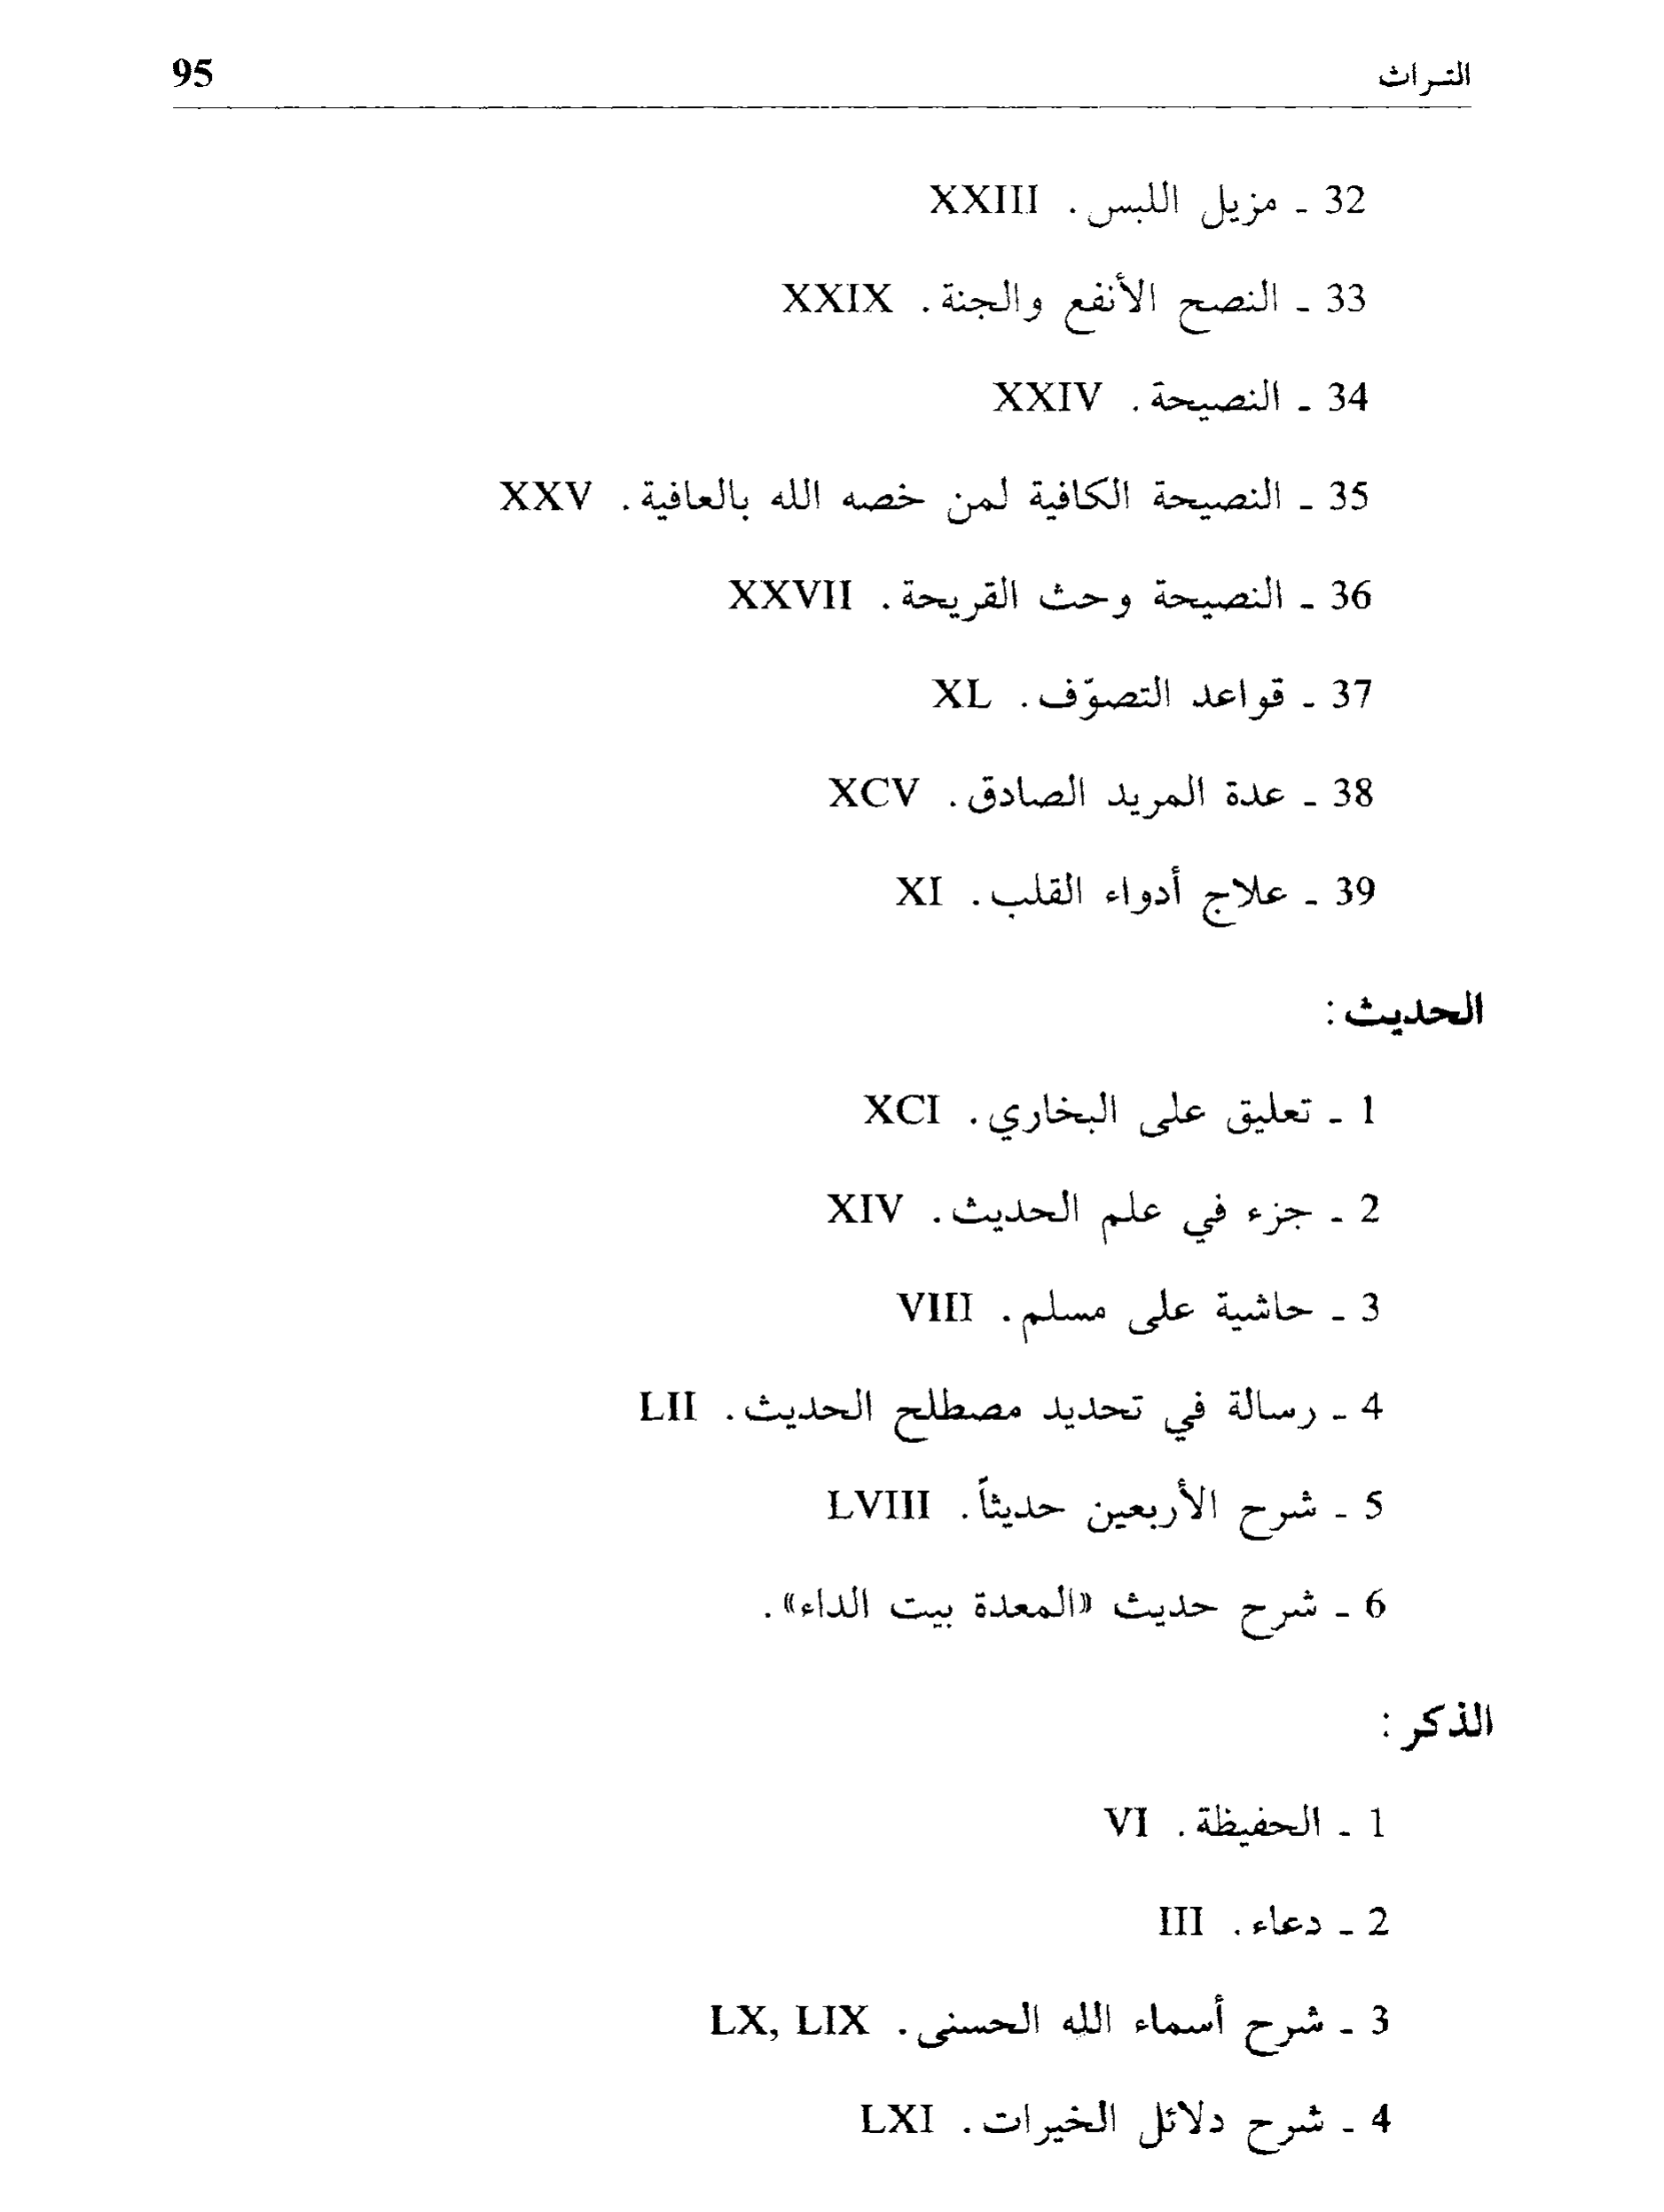 التراث 95
32 ـ مزيل اللبس. XXIII
33 ـ النصح الأنفع والجنة. XXIX
34 ـ النصيحة. XXIV
35 ـ النصيحة الكافية لمن خصه الله بالعافية. XXV
36 ـ النصيحة وحث القريحة. XXVII
37 ـ قواعد التصوّف. XL
38 ـ عدة المريد الصادق. XCV
39 ـ علاج أدواء القلب. XI
الحديث:
1 ـ تعليق على البخاري. XCI
2 ـ جزء في علم الحديث. XIV
3 ـ حاشية على مسلم. VIII
4 ـ رسالة في تحديد مصطلح الحديث. LII
5 ـ شرح الأربعين حديثاً. LVIII
6 ـ شرح حديث «المعدة بيت الداء».
الذكر:
1 ـ الحفيظة. VI
2 ـ دعاء. III
3 ـ شرح أسماء الله الحسنى. LX, LIX
4 ـ شرح دلائل الخيرات. LXI